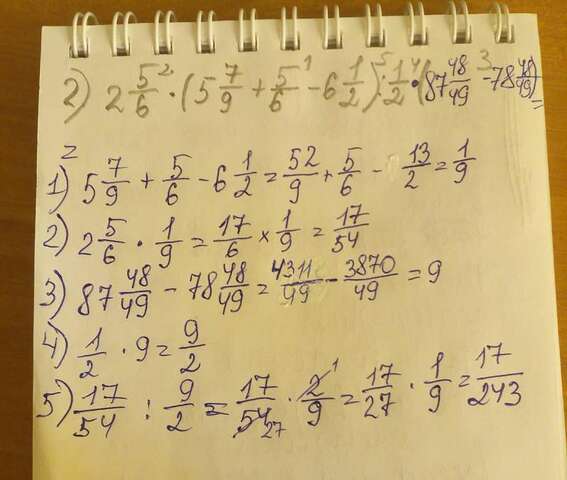 2) 2 5/6 · (5 7/9 + 5/6 - 6 1/2) : 1/2 · (87 48/49 - 78 48/49) =
1) 5 7/9 + 5/6 - 6 1/2 = 52/9 + 5/6 - 13/2 = 1/9
2) 2 5/6 · 1/9 = 17/6 × 1/9 = 17/54
3) 87 48/49 - 78 48/49 = 4311/49 - 3870/49 = 9
4) 1/2 · 9 = 9/2
5) 17/54 : 9/2 = 17/54 27 · 2/9 1 = 17/27 · 1/9 = 17/243